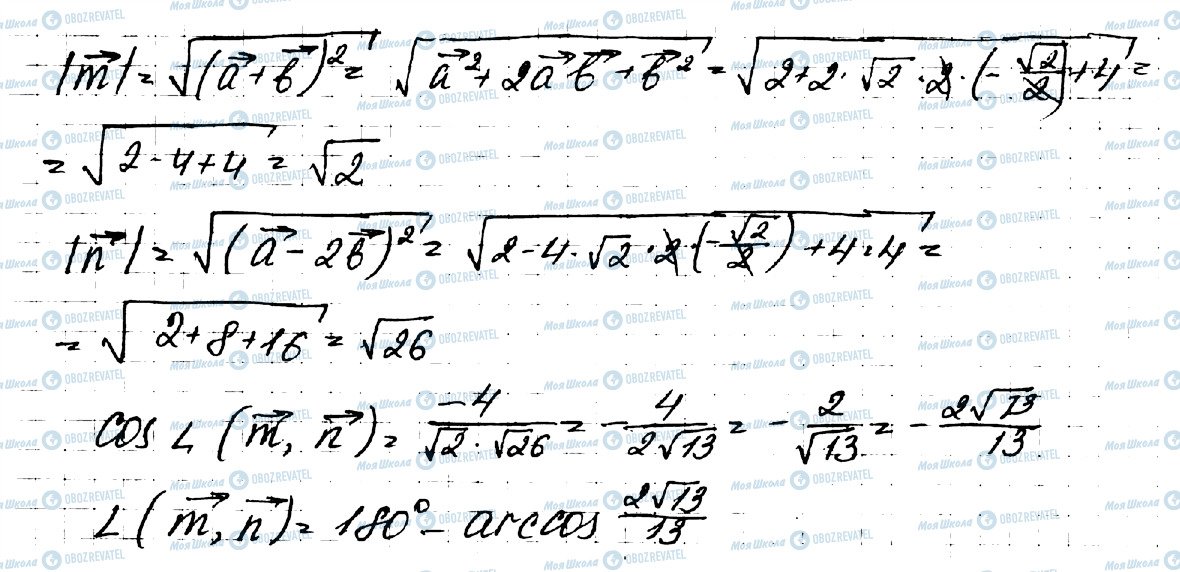 |m⃗| = √((a⃗ + b⃗)²) = √(a⃗² + 2a⃗ b⃗ + b⃗²) = √(2 + 2 · √2 · 2 · (-√2/2) + 4) =
= √(2 - 4 + 4) = √2
|n⃗| = √((a⃗ - 2b⃗)²) = √(2 - 4 · √2 · 2 · (-√2/2) + 4 · 4) =
= √(2 + 8 + 16) = √26
cos ∠ (m⃗, n⃗) = -4/(√2 · √26) = -4/(2√13) = -2/√13 = -2√13/13
∠ (m⃗, n⃗) = 180° - arccos 2√13/13
Моя Школа OBOZREVATEL